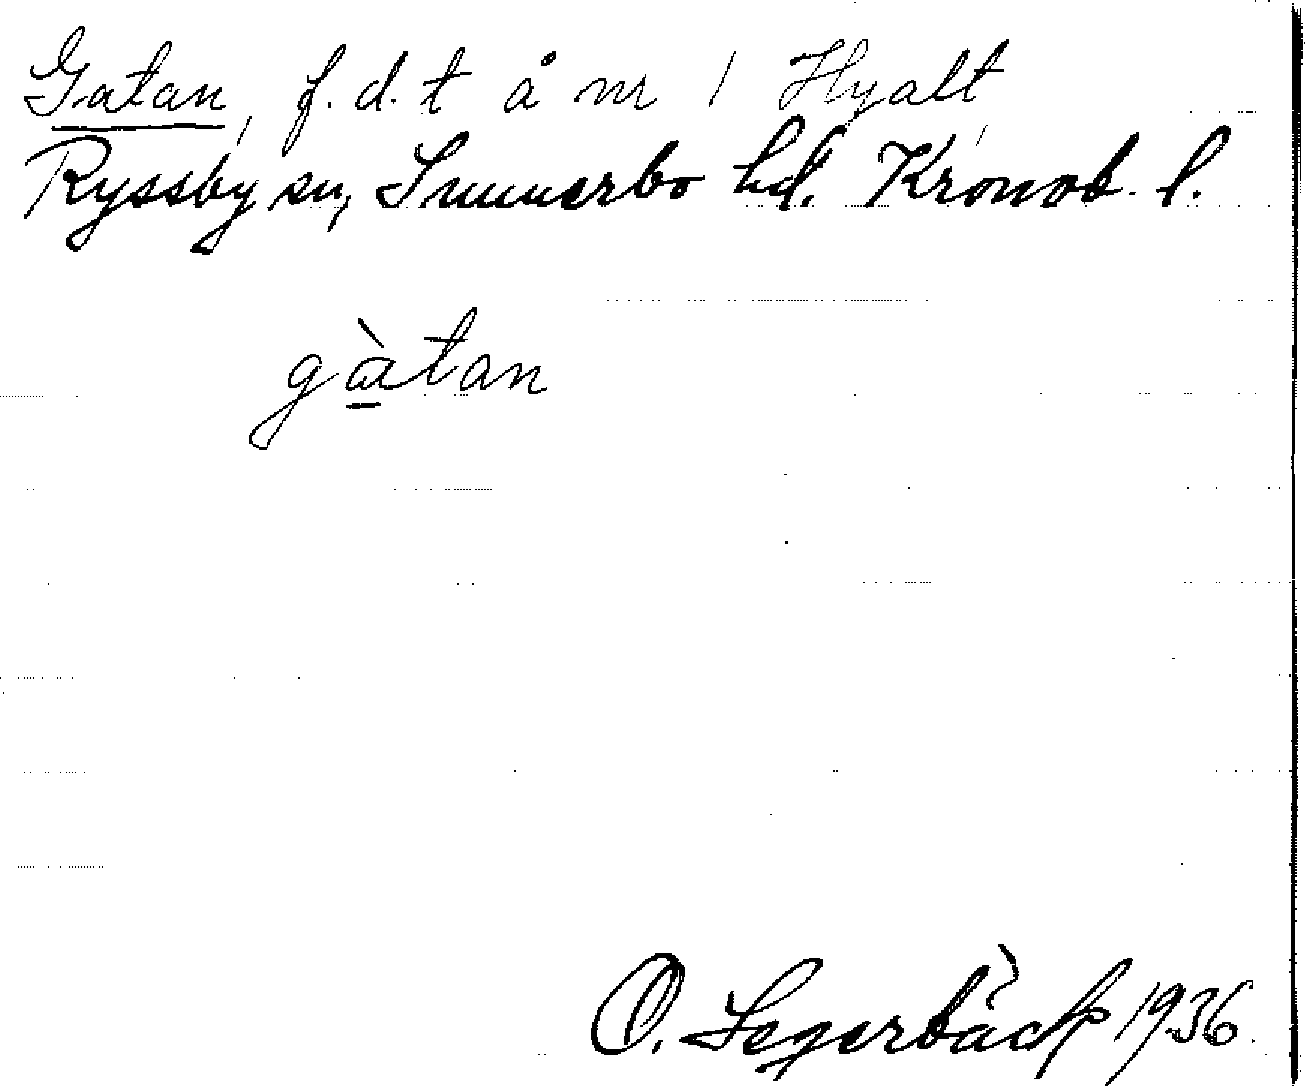 Gatan, f.d. t å nr 1 Hyalt
Ryssby sn, Sunnerbo hd. Kronob. l.
gàtan
O. Segerbäck 1936.